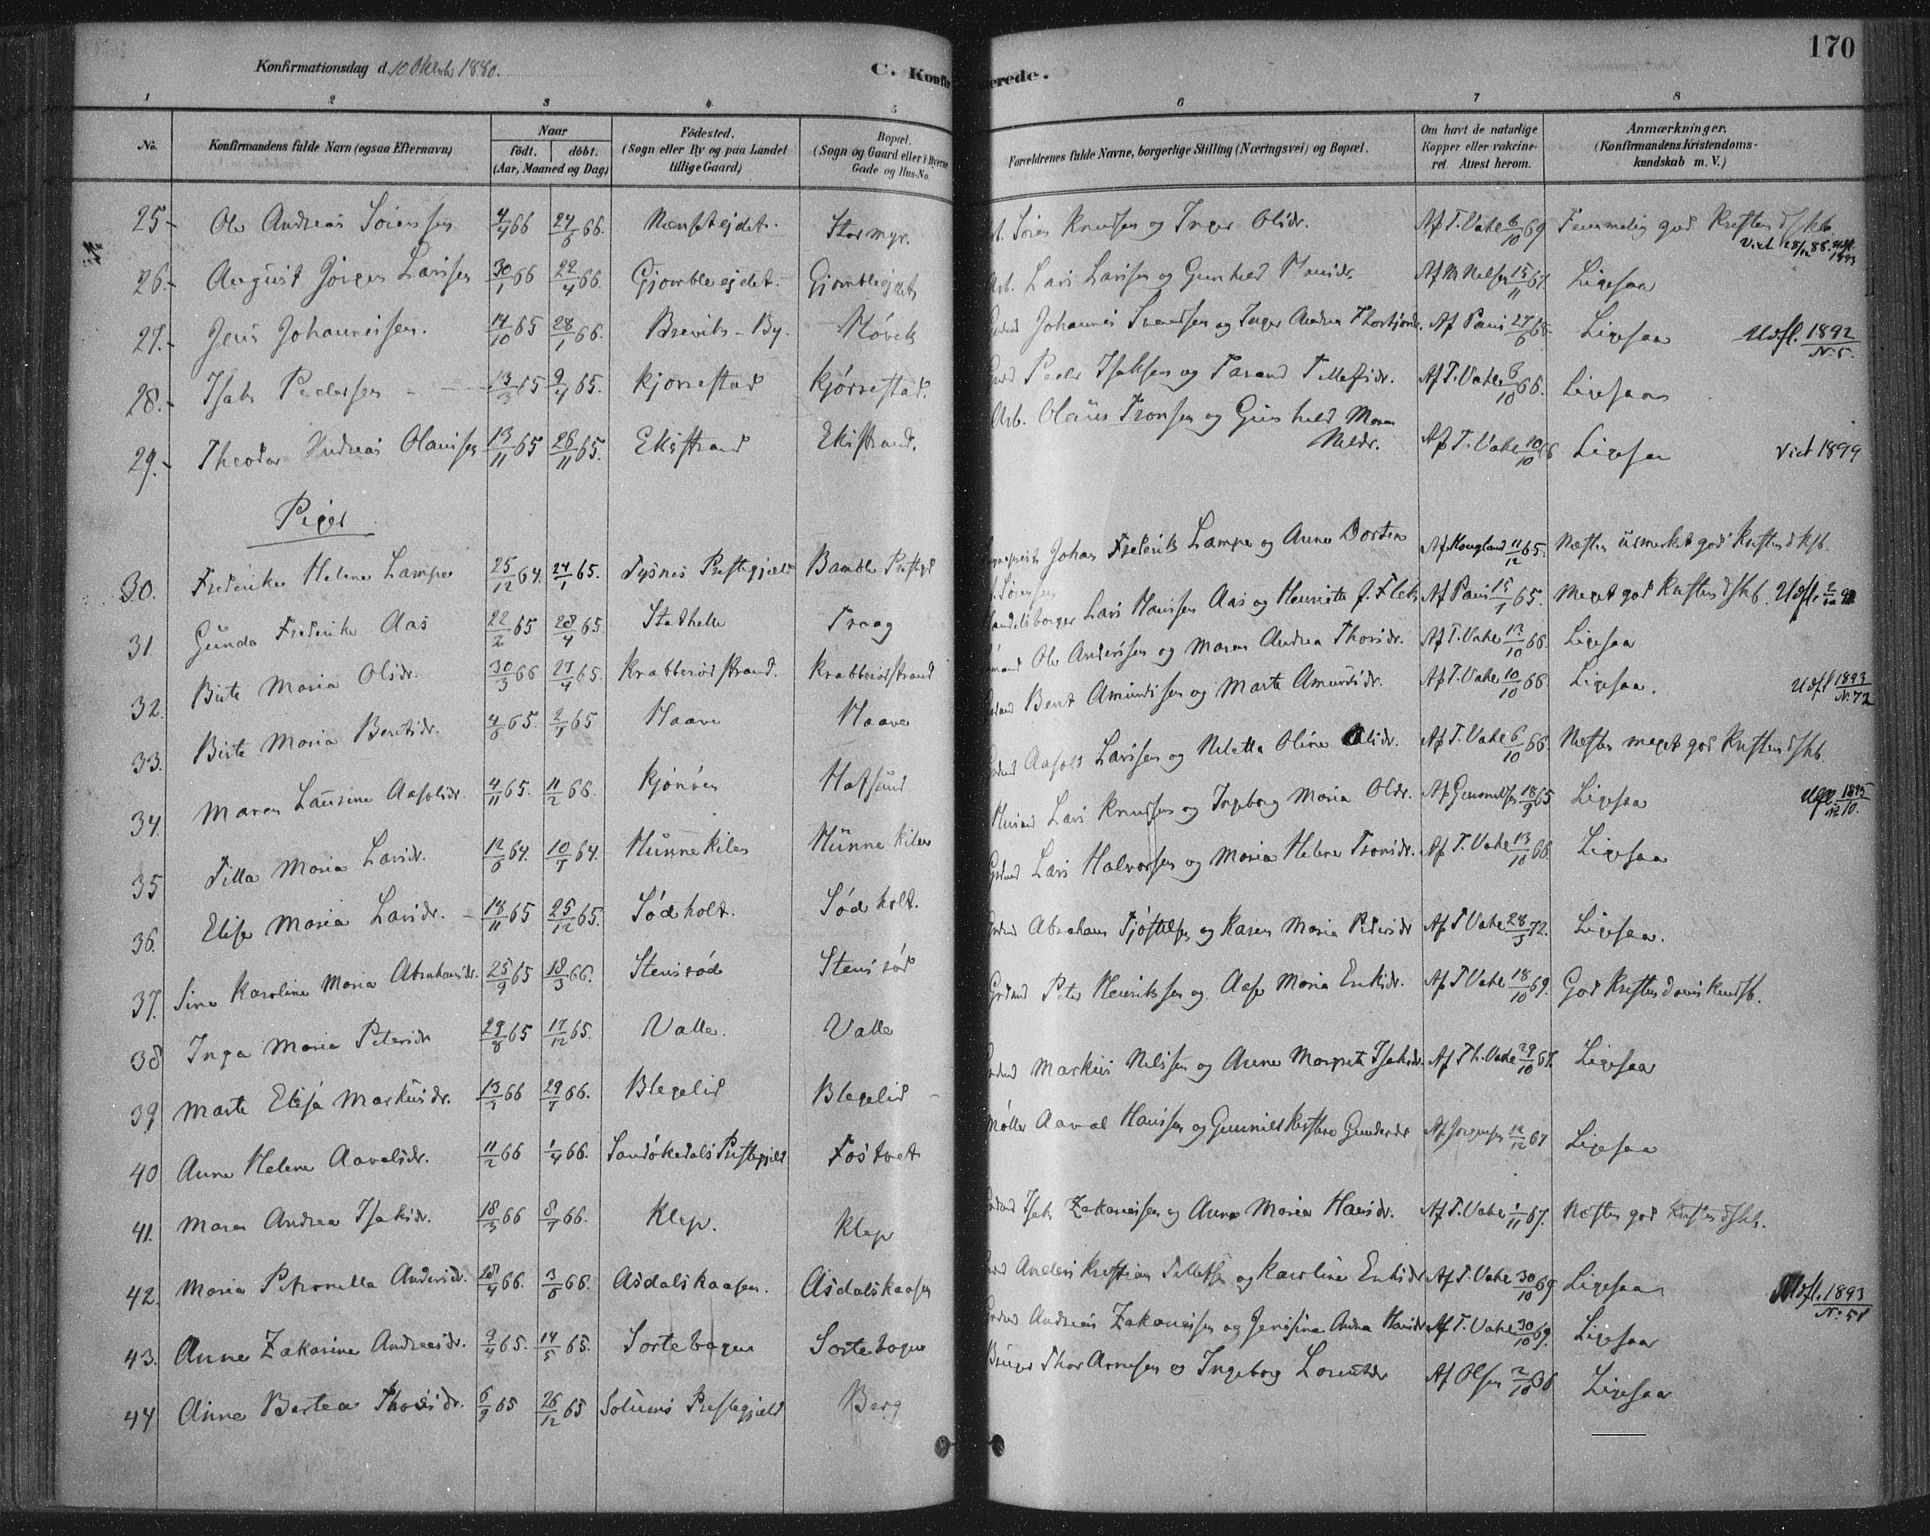 170
Konfirmationsdag d. 10 Oktober 1880.
C. Konfirmerede.
1 2 3 4 5 6 7 8
No.
Konfirmandens fulde Navn (ogsaa Efternavn)
Naar
födt. döbt.
(Aar, Maaned og Dag)
Födested.
(Sogn eller By og paa Landet
tillige Gaard)
Bopæl.
(Sogn og Gaard eller i Byerne
Gade og Hus-No.
Forældrenes fulde Navne, borgerlige Stilling (Næringsvei) og Bopæl.
Om havt de naturlige
Kopper eller vakcine-
ret Attest herom.
Anmærkninger.
(Konfirmandens Kristendoms-
kundskab m. V.)
25 Ole Andreas Sörensen 4/4 66 24/6 66. Stormyr. Sören Knudsen og Inger Olsdr. Af T. Vahe 6/10 69 Temmelig god Kristendskb.
26 August Jörgen Larssen 30/1 66 22/4 66. Gjömleejdet Gjömleejdet Arb. Lars Larssen og Gunhild Hansdr. Af M Nilsen 15/11 67. Ligesaa
27 Jens Johannessen. 14/10 65 28/1 66. Breviks-By. Johannes Svendsen og Inger Andrea Af Paus 27/6 Ligesaa Udfl. 1892 No 5.
28 Isak Pedersen 13/3 65 9/4 65. Kjörrestad Kjörrestad. Peder Isaksen og Tarand Tellefsdr. Af T. Vahe 6/10 66. Ligesaa
29 Theodor Andreas Olaussen 13/11 65 26/11 65. Ekstrand Ekstrand. Arb. Olaus Tronsen og Gunhild Maren Nilsdr. Af T. Vahe 10/10 66 Ligesaa Vid 1899
Piger
30. Frederikke Helene Lampe 25/12 64. 24/1 65. Tysnes Prestegjæld Bamble Prestegd Johan Frederik Lampe og Anne Dortea Sörensen Af Hougland 11/12 65. Næsten üdmerket god Kristendskb.
31 Gunda Frederikke Aas 22/2 65 23/4 65. Stathelle Traag Handelsborger Lars Hanssen Aas og Henriette f. Flek Af Paus 15/1 65. Meget god Kristendskb. Udfl.
32 Birte Maria Olsdr. 30/3 66 27/4 65. Krabberødstrand. Krabberødstrand Ole Anderssen og Maren Andrea Thorsdr. Af T. Vahe 13/10 66. Ligesaa
33. Birte Maria Bentsdr. 4/6 65. 2/7 65 Haave Haave Bent Amundssen og Marte Amundsdr. Af T. Vahe 10/10 66. Ligesaa. Udfl 1893 No 72
34 Maren Laurine Aasoldsdr. 4/11 65. 11/2 66. Kjönöen Hafsund Aasold Larssen og Neletta Oline Olsdr. Af T. Vahe 6/10 66. Næsten meget god Kristendskb.
35 Tilla Maria Larsdr. 12/6 64. 10/7 64. Hünnekilen Hünnekilen Lars Knudsen og Ingeborg Maria Olsdr. 18/9 65 Ligesaa 1895 No 10.
36. Elise Maria Larsdr. 18/11 65 25/12 65. Södholt. Södholt. Lars Halvorsen og Maria Helene Tronsdr. Af T. Vahe 13/10 66. Ligesaa
37. Sina Karoline Maria Abrahamsdr. 25/9 65 18/3 66. Stensröd Stensröd Abraham Tjöstelsen og Karen Maria Pedersdr Af T Vahe 28/3 72. Ligesaa.
38 Inga Maria Petersdr 29/8 65 17/12 65. Valle. Valle Peter Henrikssen og Aase Maria Eriksdr. Af T Vahe 18/10 69. God Kristendomskundsk.
39 Marte Elise Markusdr. 13/3 66 29/7 66. Blegelid Blegelid Markus Nilssen og Anne Margrete Isaksdr. Af Th. Vahe 29/10 67. Ligesaa
40 Anne Helene Aavalsdr. 11/2 66 1/4 66. Sandökedals Prestegjeld Fostvet Möller Aaval Hanssen og Gunnild Kirstine Gundersdr Af Jorgensen 12/12 67 Ligesaa
41. Maren Andrea Isaksdr. 18/3 66 8/7 66. Klep. Klep Isak Zakariassen og Anne Maria Hansdr. Af T. Vahe 1/11 67. Næsten god Kristendskb.
42. Maria Petronella Andersdr. 28/4 66. 3/6 66. Asdalskaasen. Asdalskaasen Anders Kristian Tellefsen og Karoline Eriksdr Af T. Vahe 30/10 69 Ligesaa Udfl. 1893 No 51
43. Anne Zakarine Andreasdr. 9/4 65. 14/5 65. Sortebogen Sortebogen Andreas Zakariassen og Jensine Andrea Hansdr Af T. Vahe 30/10 69. Ligesaa
44 Anne Bertea Thorsdr. 6/9 65 26/12 65 Solums Prestegjæld Berg Thor Arnesen og Ingeborg Lorentsdr Af Olsen 2/10 68 Ligesaa